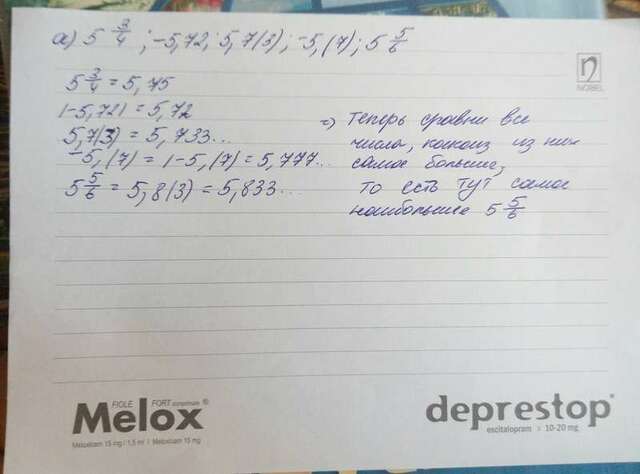 а) 5 3/4 ; -5,72; 5,7(3); -5,(7); 5 5/6
NOBEL
5 3/4 = 5,75
|-5,72| = 5,72
5,7(3) = 5,733...
-5,(7) = |-5,(7) = 5,777...
5 5/6 = 5,8(3) = 5,833...
=> Теперь сравни все
числа, какоиз из них
самое больше,
То есть тут самое
наибольшее 5 5/6
FIOLE FORT comprimate
Melox®
Meloxicam 15 mg / 1,5 ml / Meloxicam 15 mg
deprestop®
escitalopram 10-20 mg